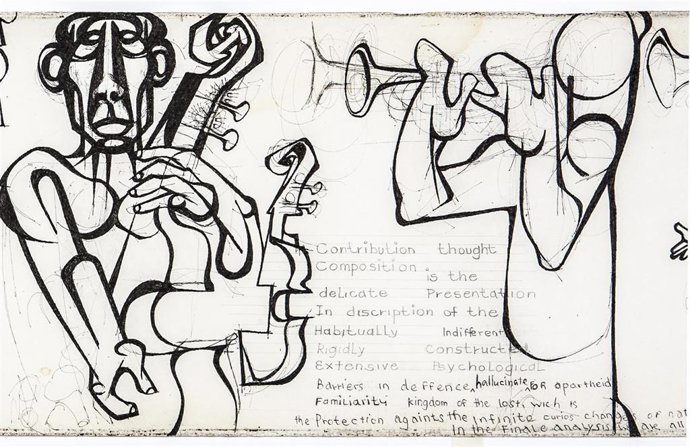 Contribution thought
Composition is the
delicate Presentation
In discription of the
Habitually Indifferent
Rigidly Constructed
Extensive Psychological
Barriers in deffence, hallucinate, for apartheid
Familiarity kingdom of the lost. wich is
the Protection againts the infinite curios changes of nat
In the finale analysis all